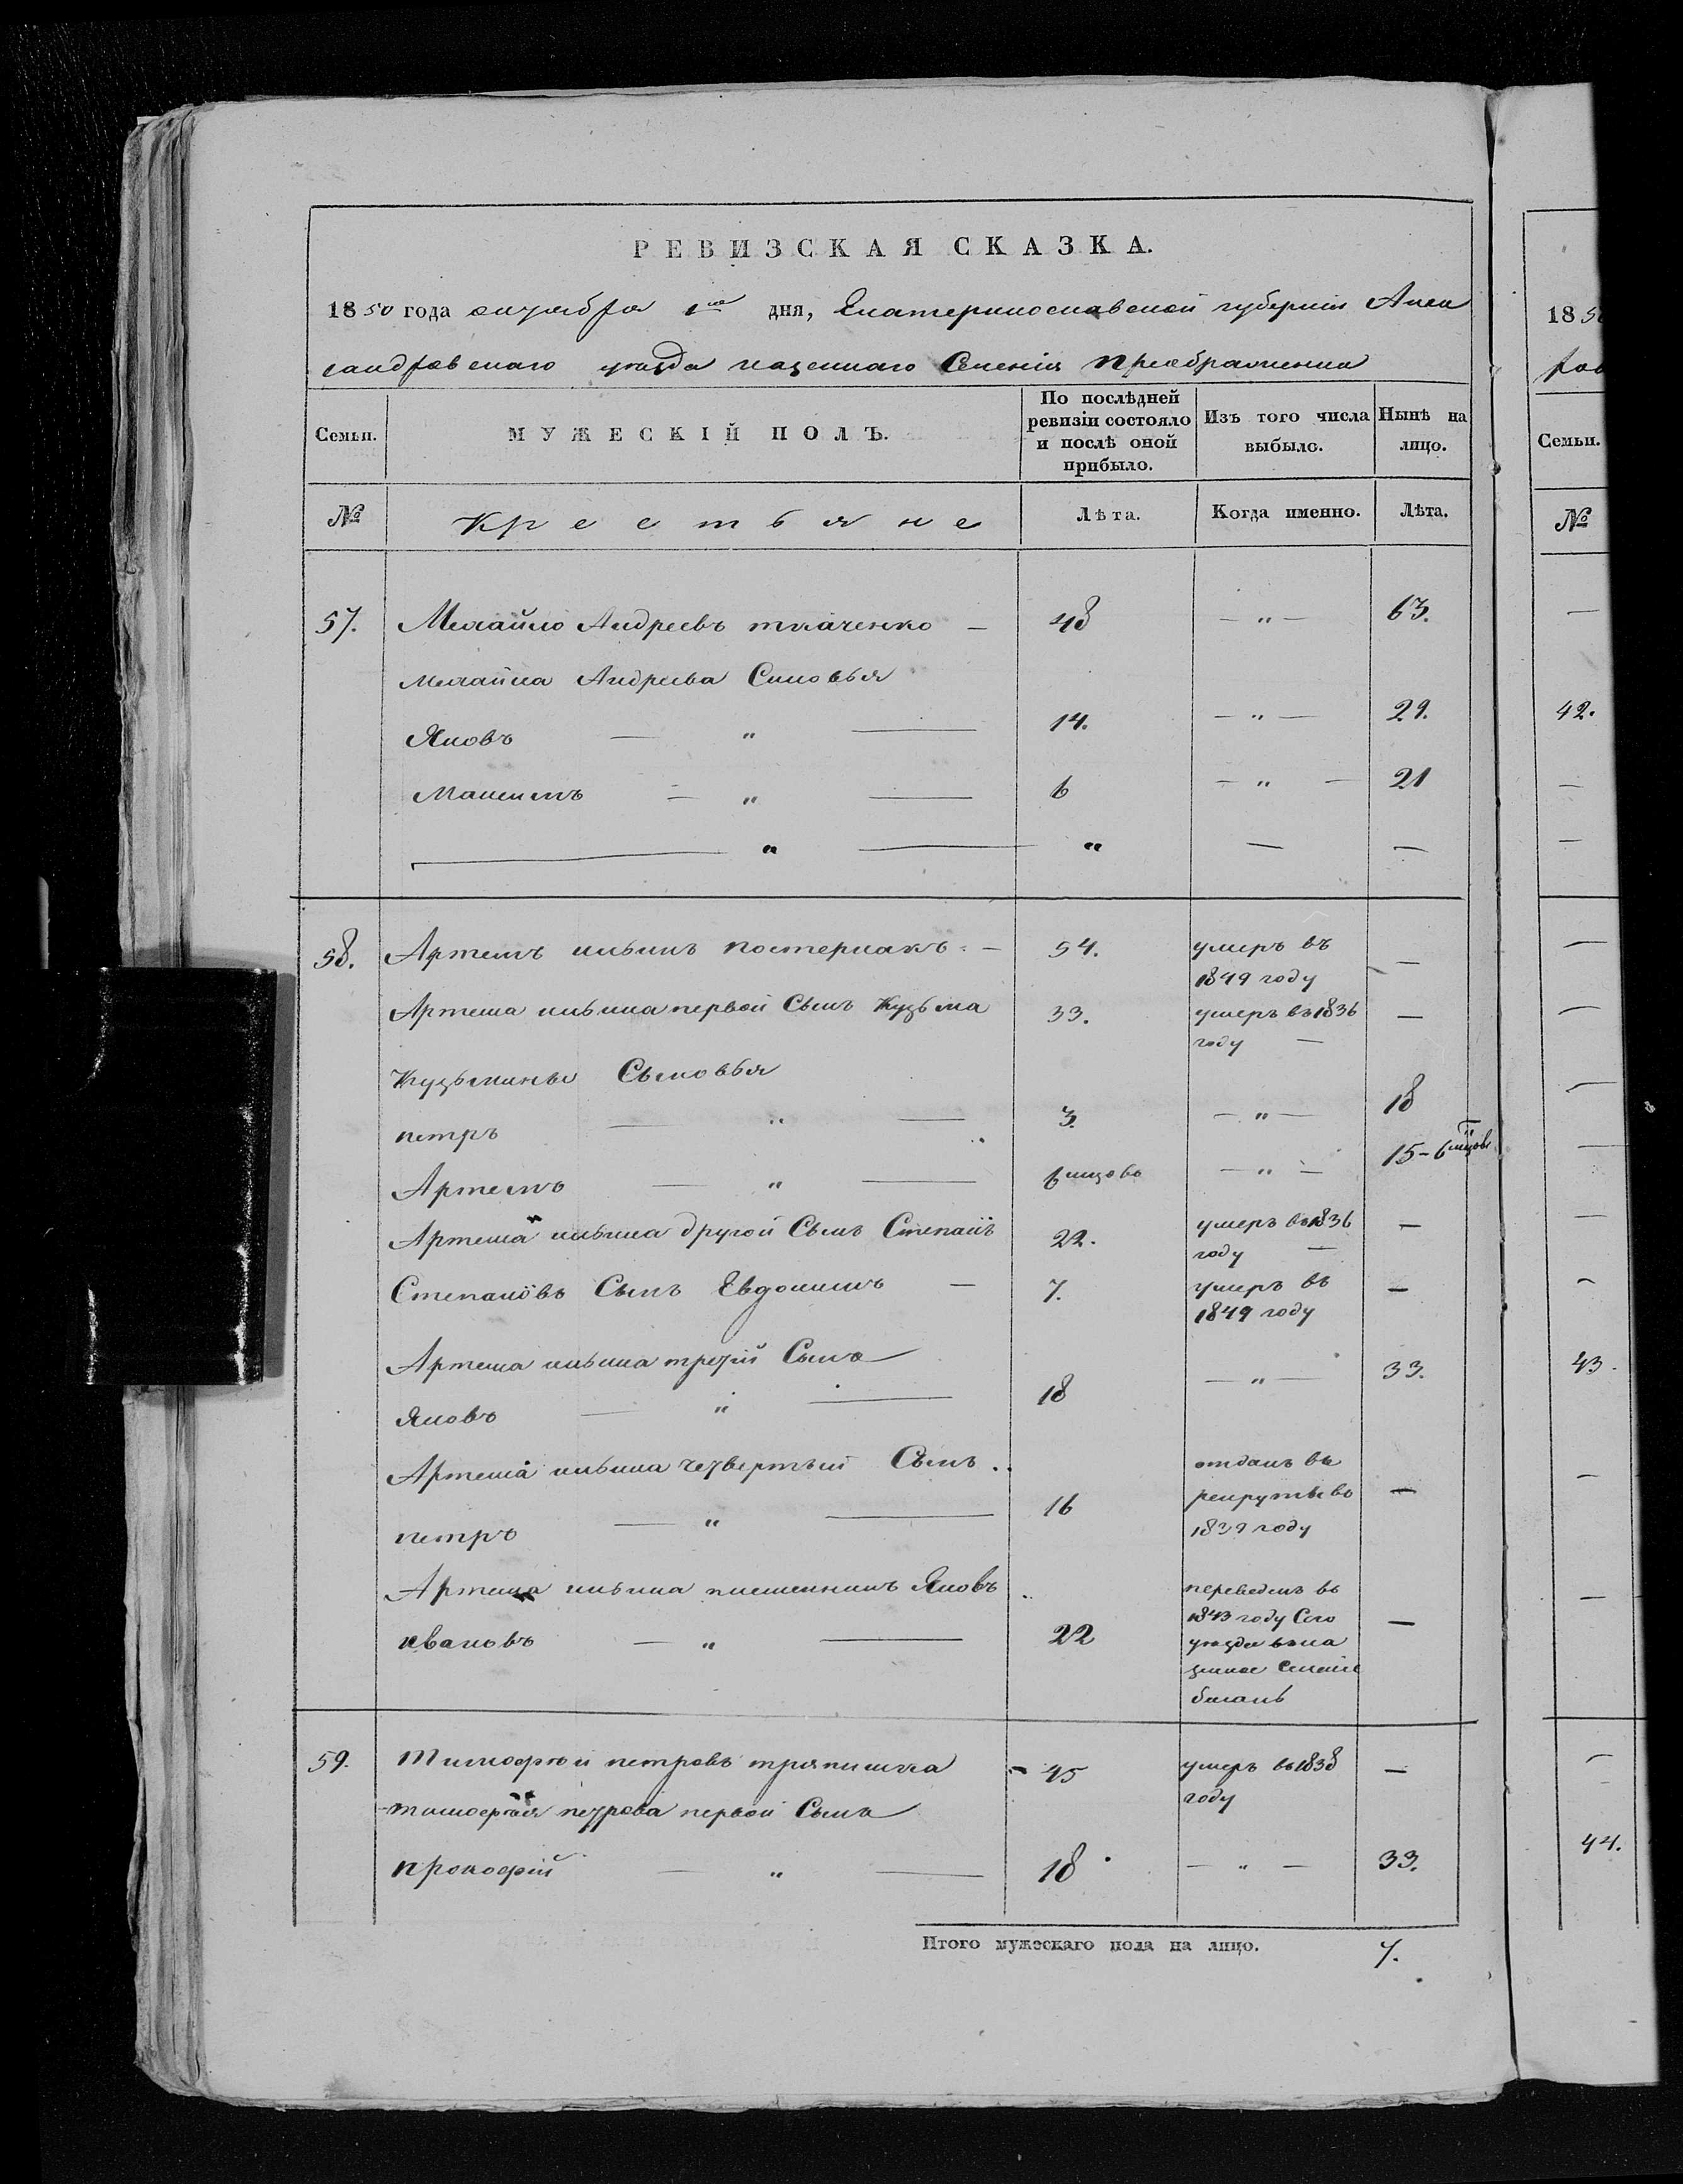 РЕВИЗСКАЯ СКАЗКА.
1850 года октября 1го дня, Екатеринославской губернии Алек
сандровскаго уѣзда казеннаго Селенія Преображенка
Семьи. МУЖЕСКІЙ ПОЛЪ. По послѣдней ревизіи состояло и послѣ оной прибыло. Изъ того числа выбыло. Нынѣ на лицо.
№ Крестьяне Лѣта. Когда именно. Лѣта.
57. Михайло Андреевъ ткаченко — 48 — „ — 63.
Михайла Андреева Сыновья
Яковъ — „ — 14. — „ — 29.
Максимъ — „ — 6 — „ — 21
— „ — „ — —
58. Артемъ ильинъ постернакъ — 54. умеръ въ —
1849 году
Артема ильина первой Сынъ Кузьма 33. умеръ въ 1836 —
году —
Кузьмины Сыновья
петръ — „ — 3. — „ — 18
Артемъ — „ — 6 мцовъ — „ — 15-6 мцовъ
Артема ильина другой Сынъ Степанъ 22. умеръ въ 1836 —
году —
Степановъ Сынъ Евдокимъ — 7. умеръ въ —
1849 году
Артема ильина третій Сынъ
Яковъ — „ — 18 — „ — 33.
Артема ильина четвертый Сынъ
петръ — „ — 16 отданъ въ —
рекруты въ
1839 году
Артема ильина племенникъ Яковъ
ивановъ — „ — 22 переведенъ въ —
1843 году Сего
уѣзда въ ка
зенное Селеніе
59. Тимофей петровъ тряпичка — 45 умеръ въ 1838 —
году
тимофея петрова первой Сынъ
прокофій — „ — 18 — „ — 33.
Итого мужескаго пола на лицо. 7.
185
ров
Семьи.
№
42.
43.
44.